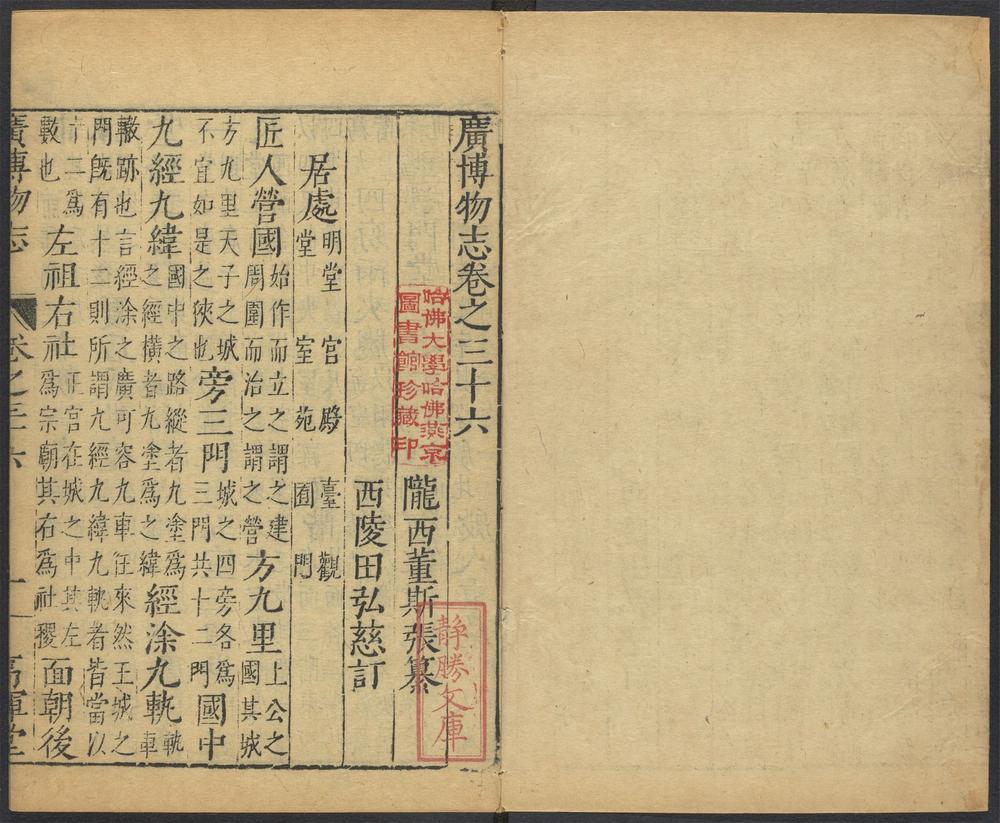 廣博物志卷之三十六
隴西董斯張纂
西陵田弘慈訂
居處 明堂 宮殿 臺觀
堂 室 苑 囿 門
匠人營國 始作而立之謂之建
周圍而治之謂之營 方九里 上公之
國其城
方九里天子之城
不宜如是之狹也 旁三門 城之四旁各爲
三門共十二門 國中
九經九緯 國中之路縱者九塗爲
之經橫者九塗爲之緯 經涂九軌 軌
車
轍跡也言經涂之廣可容九車往來然王城之
門旣有十二則所謂九經九緯九軌者皆當以
十二爲
數也 左祖右社 王宮在城之中其左
爲宗廟其右爲社稷 面朝後
廣博物志 卷之三十六 一 高暉堂
哈佛大學哈佛燕京
圖書館珍藏印
靜勝文庫